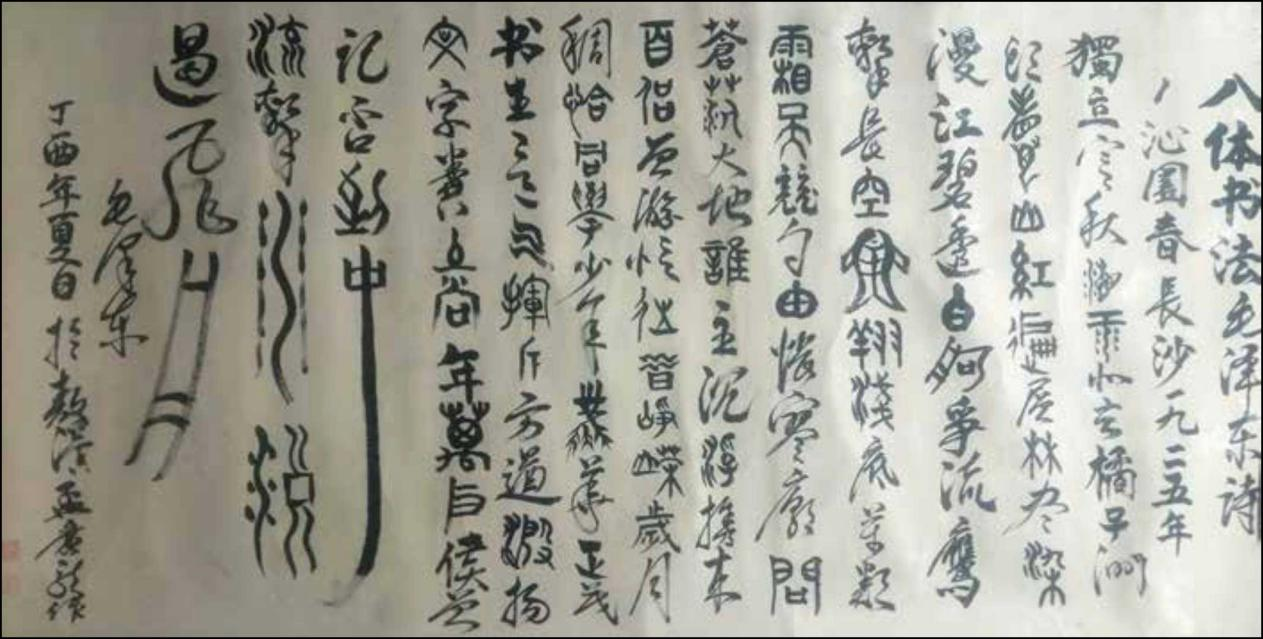 八体书法毛泽东诗
沁園春長沙一九二五年
獨立寒秋湘雨北去橘子洲
头看萬山紅遍层林尽染
漫江碧透百舸爭流鷹
擊長空魚翔淺底万類
霜天競自由悵寥廓問
蒼茫大地誰主沉浮攜来
百侣曾游忆往昔崢嶸歲月
稠恰同學少年風華正茂
书生意气揮斥方遒激扬
文字糞土當年萬户侯曾
记否到中
流擊水浪
遏飛舟
毛澤东
丁酉年夏日於敖漢孟廣龙作